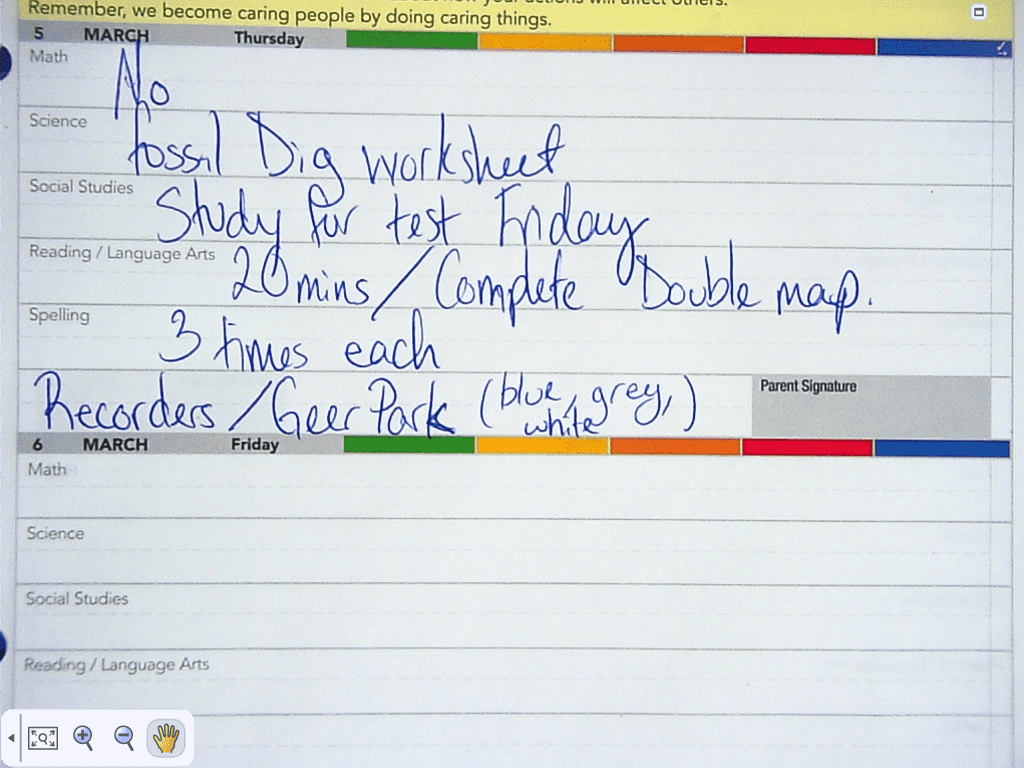 Remember, we become caring people by doing caring things.
5 MARCH Thursday
Math
No
Science
Fossil Dig Worksheet
Social Studies
Study for test Friday
Reading / Language Arts
20 mins / Complete Double map.
Spelling
3 times each
Recorders / Geer Park (blue, grey,)
white
Parent Signature
6 MARCH Friday
Math
Science
Social Studies
Reading / Language Arts